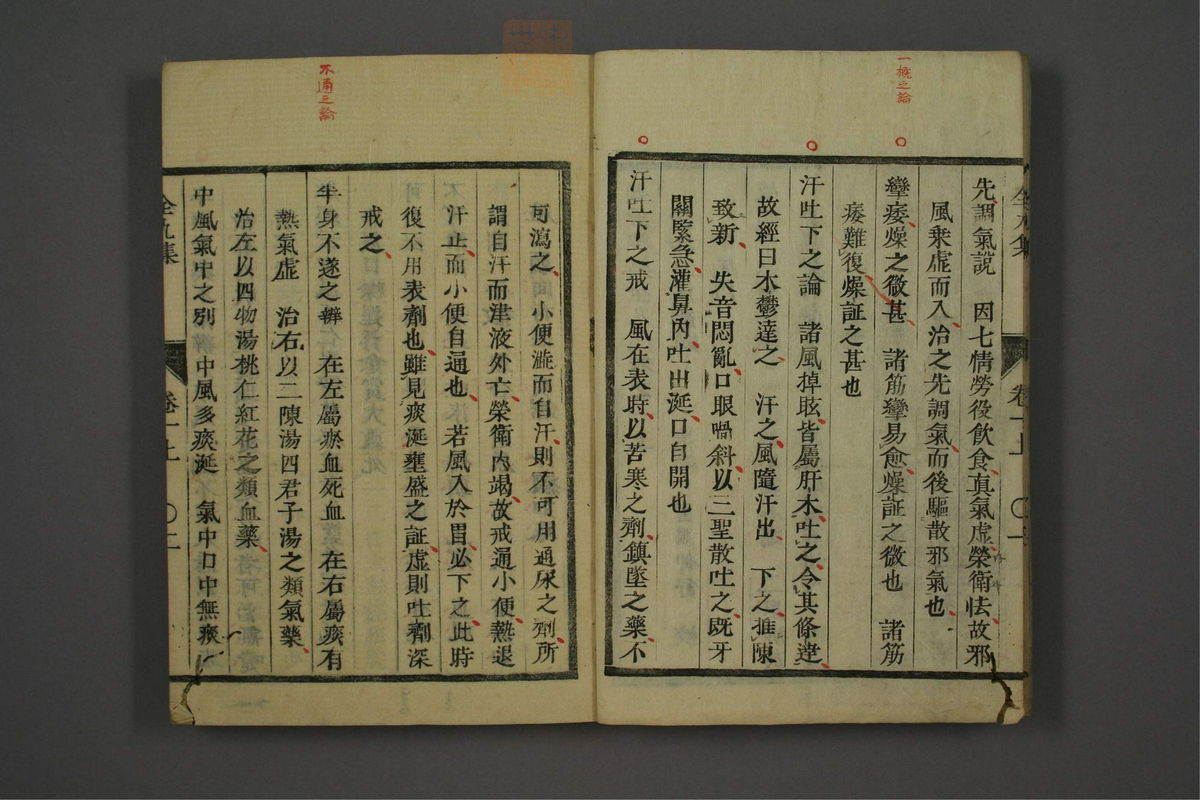 一概之論
先調氣説　因七情勞役飲食真氣虛榮衛怯故邪
風乘虛而入治之先調氣而後驅散邪氣也
攣痿燥之微甚　諸筋攣易愈燥証之微也　諸筋
痿難復燥証之甚也
汗吐下之論　諸風掉眩皆屬肝木吐之令其條達
故經曰木鬱達之　汗之風隨汗出　下之推陳
致新　失音悶亂口眼喎斜以三聖散吐之既牙
關緊急灌鼻內吐出涎口自開也
汗吐下之戒　風在表時以苦寒之劑鎮墜之藥不
不通之論
可瀉之　小便澁而自汗則不可用通尿之劑所
謂自汗而津液外亡榮衛內竭故戒通小便熱退
汗止而小便自通也　若風入於胃必下之此時
復不用表劑也雖見痰涎壅盛之証虛則吐劑深
戒之
半身不遂之辨　在左屬瘀血死血　在右屬痰有
熱氣虛　治右以二陳湯四君子湯之類氣藥
治左以四物湯桃仁紅花之類血藥
中風氣中之別　中風多痰涎　氣中口中無痰
全九集　卷一上　〇二